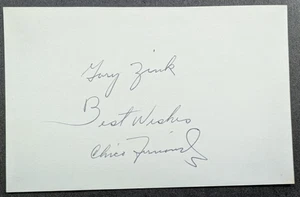 Gary Zink
Best Wishes
Chico